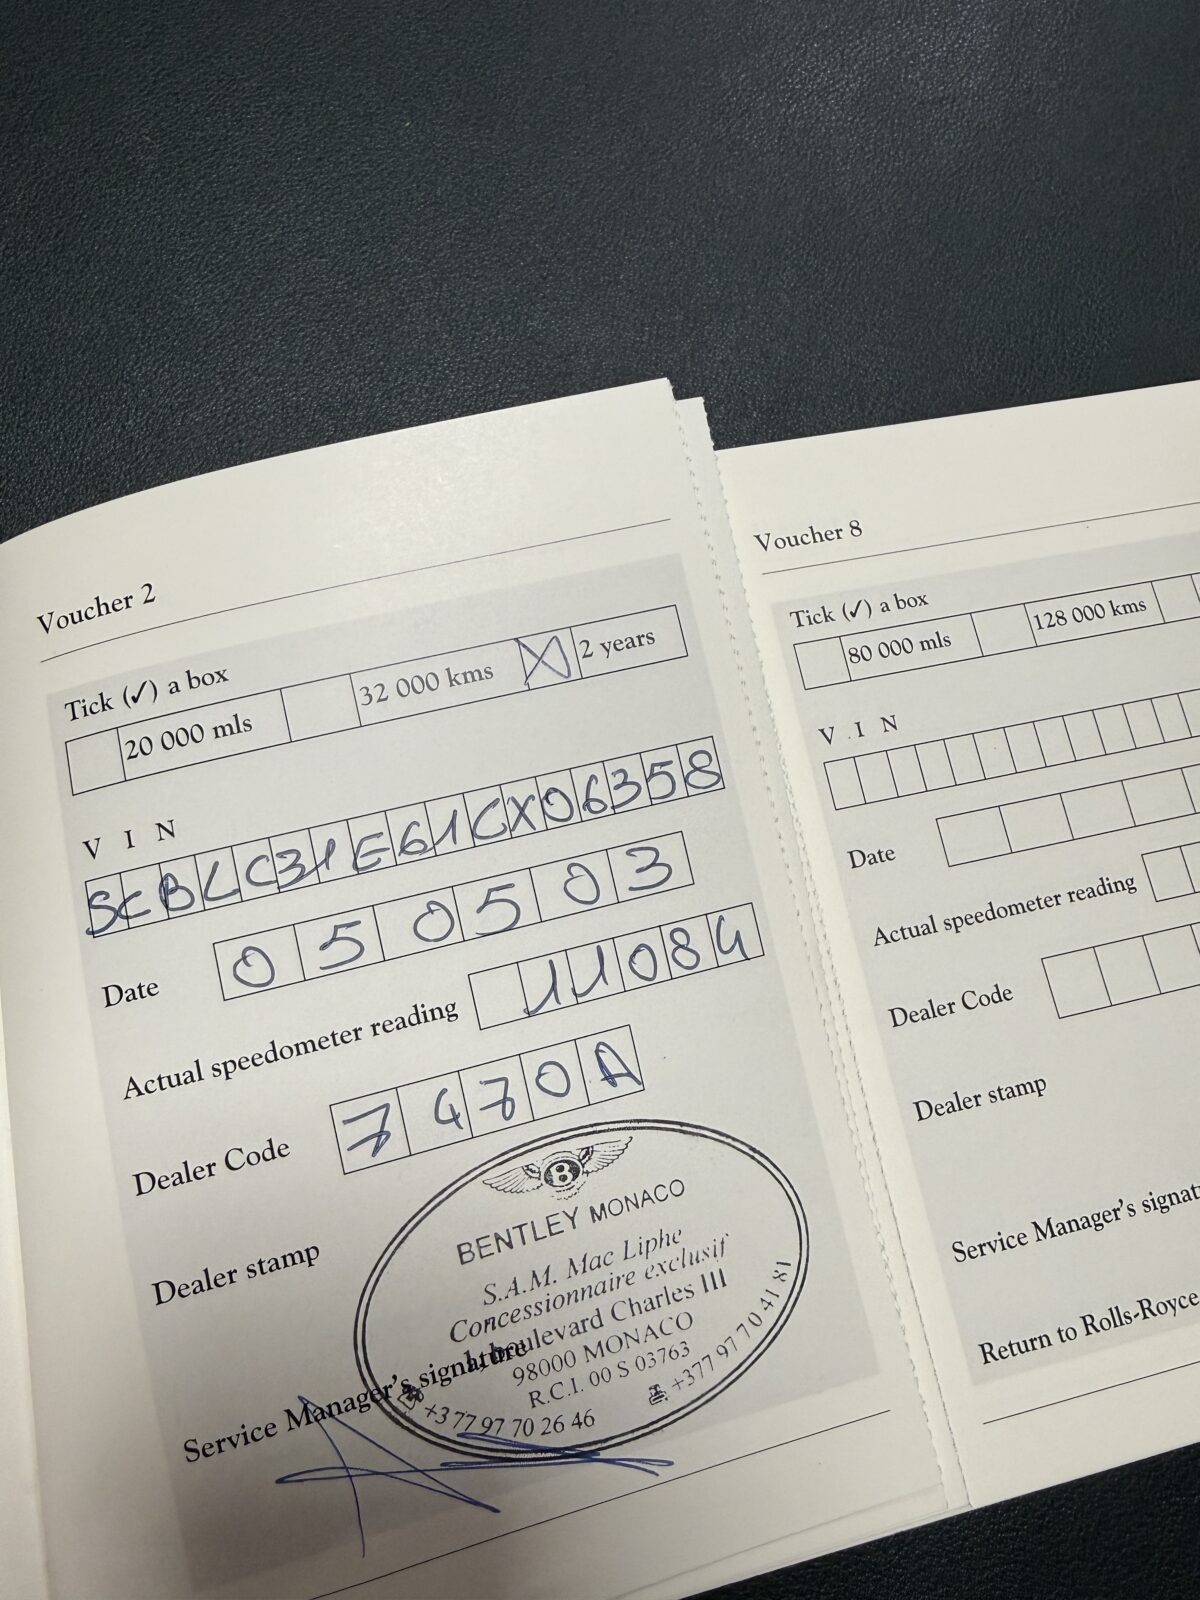 Voucher 2
Tick (✓) a box
20 000 mls
32 000 kms
X 2 years
V I N
SCBLC31E61CX06358
Date 050503
Actual speedometer reading 11084
Dealer Code 7470A
Dealer stamp
B
BENTLEY MONACO
S.A.M. Mac Liphe
Concessionnaire exclusif
boulevard Charles III
98000 MONACO
R.C.I. 00 S 03763
+377 97 70 26 46
+377 97 70 41 81
Service Manager's signature
Voucher 8
Tick (✓) a box
80 000 mls
128 000 kms
V I N
Date
Actual speedometer reading
Dealer Code
Dealer stamp
Service Manager's
Return to Rolls-Royce